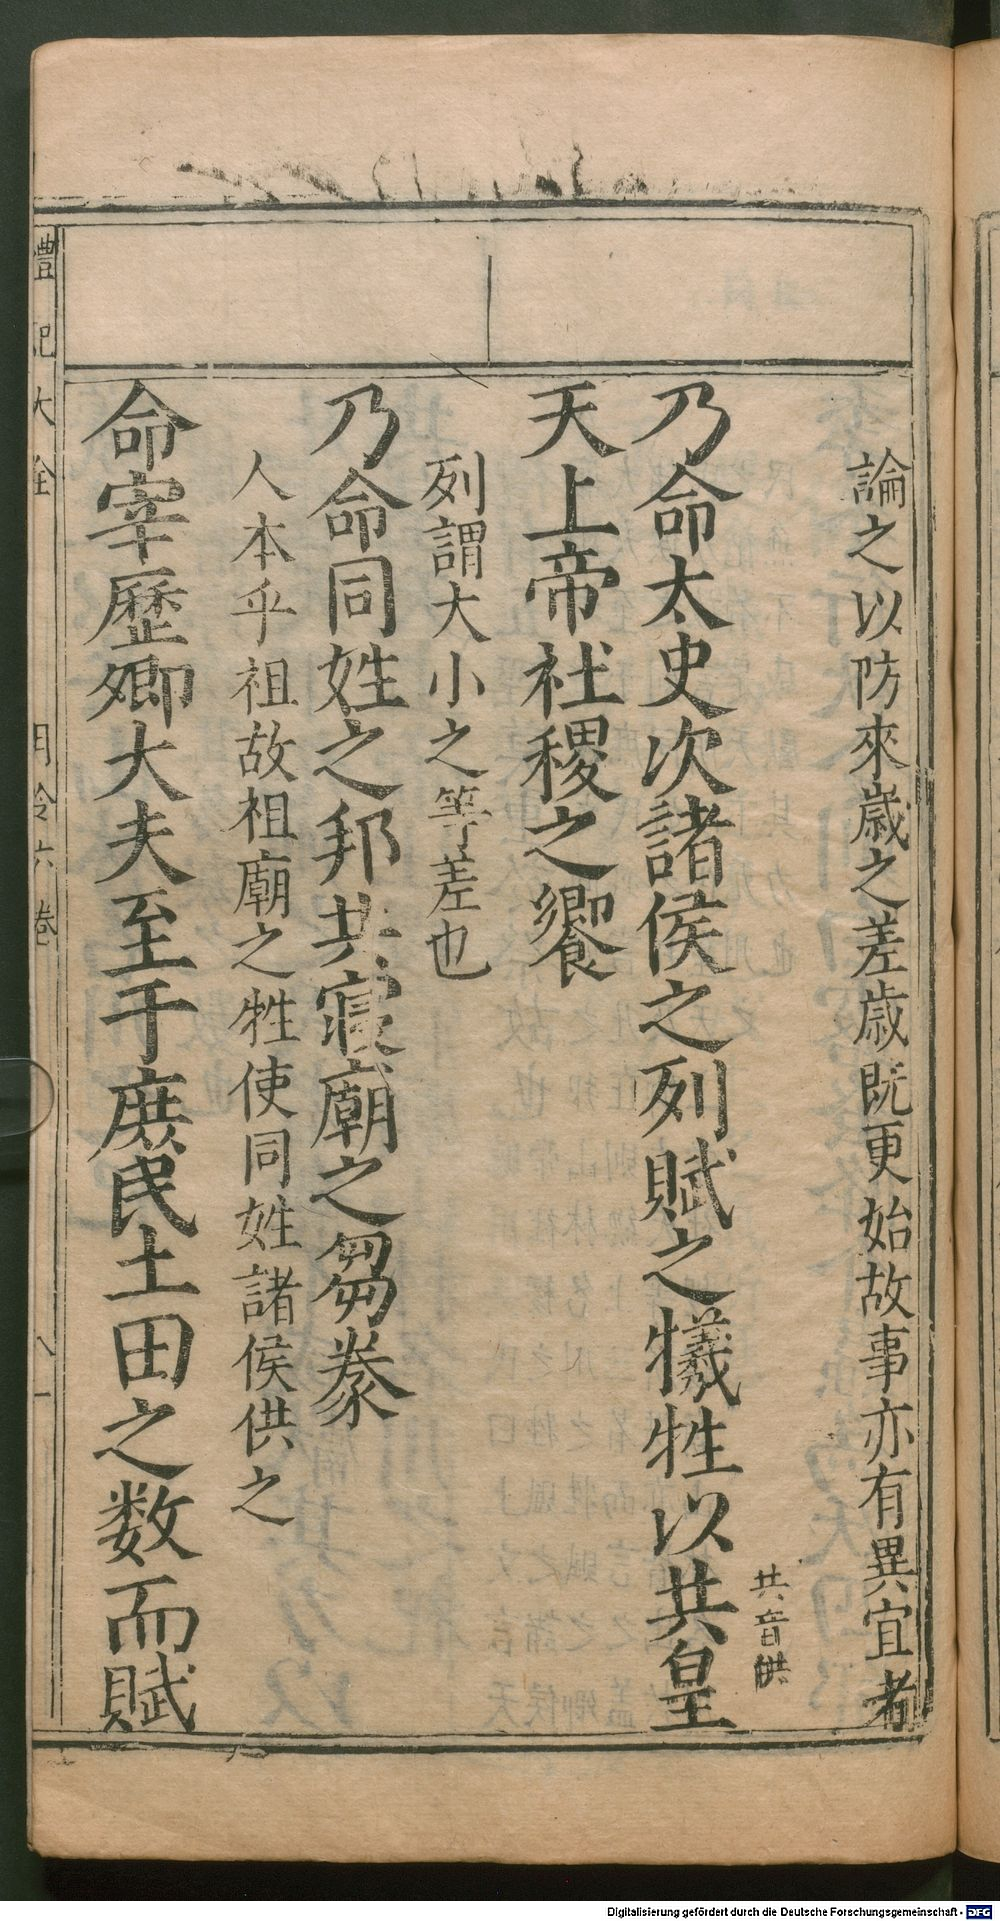 論之以防來歲之差歲既更始故事亦有異宜者
共音供
乃命太史次諸侯之列賦之犧牲以共皇
天上帝社稷之饗
列謂大小之等差也
乃命同姓之邦共寢廟之芻豢
人本乎祖故祖廟之牲使同姓諸侯供之
命宰歷卿大夫至于庶民土田之数而賦
禮記大全 月令六卷 八一
Digitalisierung gefördert durch die Deutsche Forschungsgemeinschaft - DFG